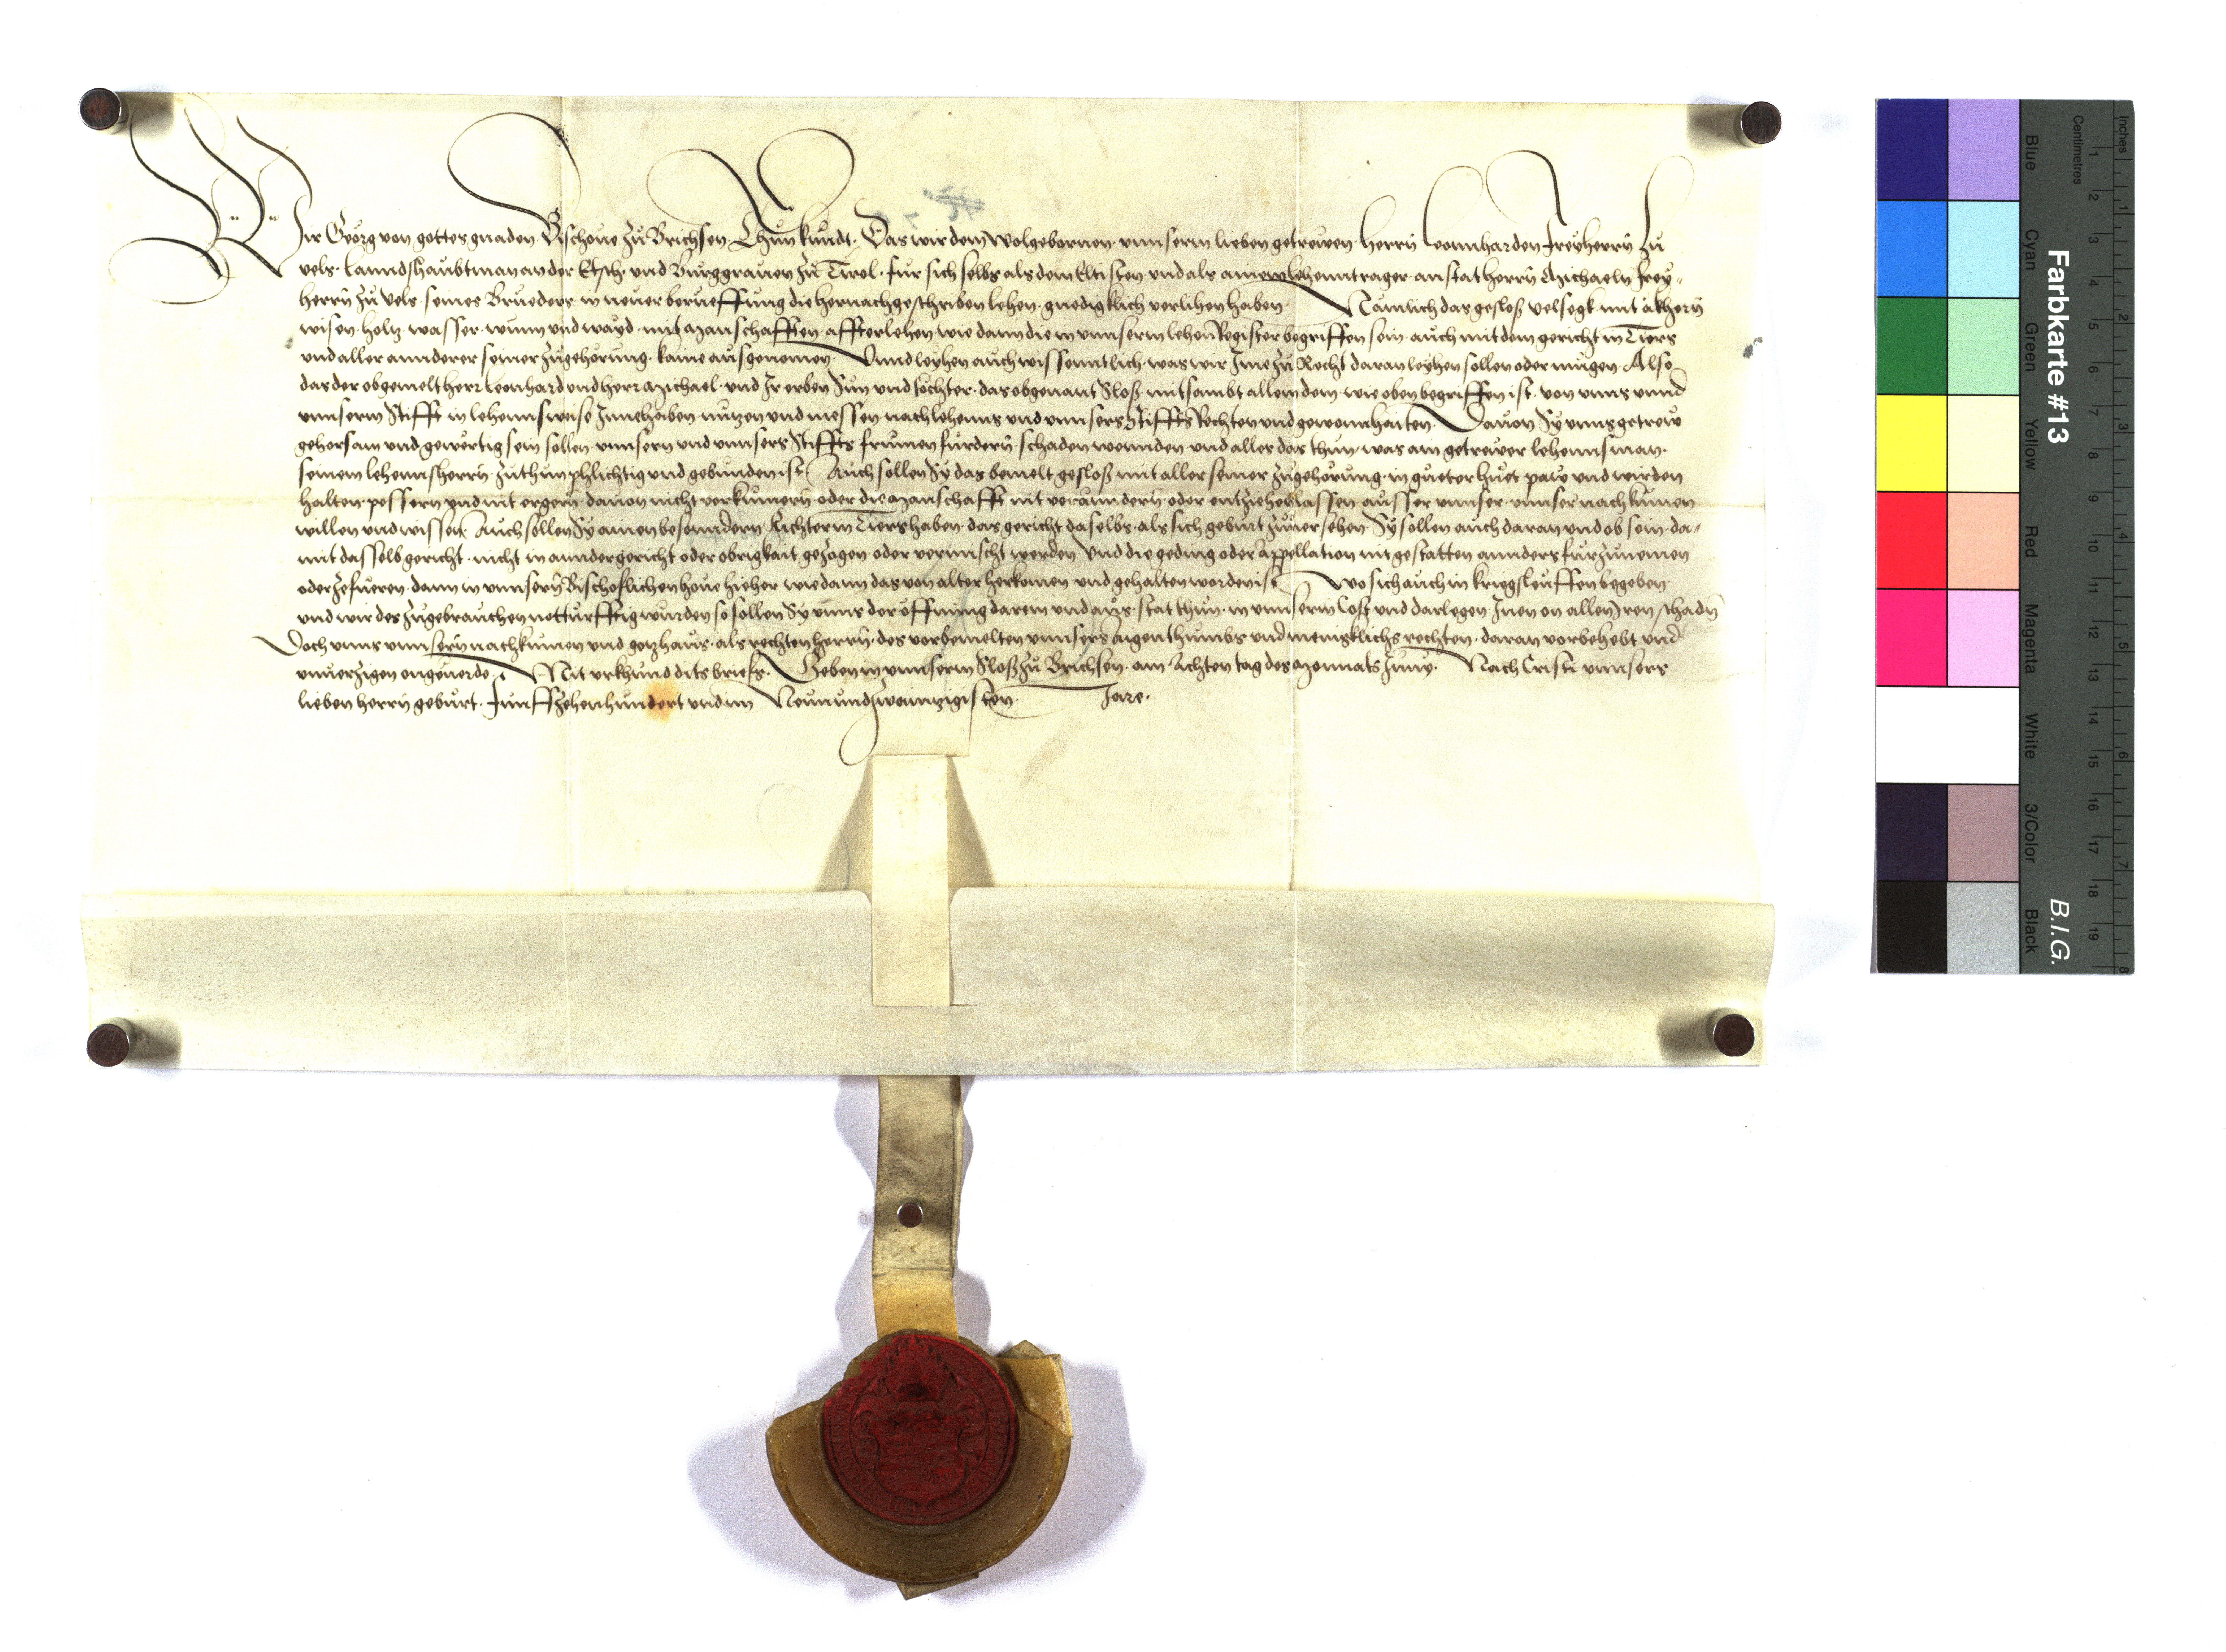 Wir Georg von gottes gnaden Bischoue zů Brichsen. Thun kundt. Das wir dem wolgebornnen vnnserm lieben getrewen. Herrn Leonnharden Freyherrn zu
vels. Lanndshaubtman an der Etsch. vnd Burggrauen zů Tirol. fur sich selbs als dem Eltisten. vnd als ainem lehenntrager. anstat herrn Michaeln frey-
herrn zů Vels. seines Brueders. in neuer berueffung die hernachgeschriben lehen. gnedigklich verlihen haben. Nämlich das gesloß velsegk mit äkhern
wisen. holtz. wasser. wunn vnd wayd. mit manschafften. affterlehen. wie dann die in vnnserm lehen Register begriffen sein. auch mit dem gericht in Tiers
vnd aller annderer seiner zugehorung. kaine ausgenomen. Vnnd leyhen auch wissenntlich. was wir Ine zů Recht daran leyhen sollen oder mügen. Also
das der obgemelt herr Leonhard vnd herr Michael. vnd Ir erben Sün vnd töchter. das obgenant Sloß. mitsambt allem dem. wie oben begriffen ist. von vnns vnnd
vnnserm Stifft in lehennsweise Innehaben nutzen vnd niessen. nach lehenns vnd vnnsers Stiffts Rechten vnd gewonnhaiten. Dauon Sy vnns getrew
gehorsam vnd gewertig sein sollen. vnnsern vnd vnnsers Stiffts frumen furdern. schaden wennden vnd alles das thun. was ain getrewer lehennsman.
seinem lehennsherrn zuthun phlichtig vnd gebunden ist. Auch sollen Sy das bemelt gesloß mit aller seiner zugehörung. in gueter huet paw vnd wirden
halten. pessern vnd nit ergern. dauon nicht verkumern. oder die manschafft nit verännndern. oder entziehen lassen ausser vnnser. vnnser nachkumen
willen vnd wissen. Auch sollen Sy ainen besonndern Richter in Tiers haben. das gericht daselbs. als sich geburt zuuersehen. Sy sollen auch daran vnd ob sein. da-
mit dasselb gericht. nicht in annder gericht oder obrigkait gezogen. oder vermischt werden. Vnd die geding oder appellation nit gestatten annders furzunemen
oder zefueren. dann in vnnsern Bischoflichen houe hieher. wie dann das von alter herkomen vnd gehalten worden ist. Wo sich auch in kriegsleuffen begeben
vnd wir des zugebrauchen notturfftig wurden so sollen Sy vnns der öffnung darein vnd aus. stat thun. in vnnserm Cost vnd darlegen. Inen on allen Iren schadn
Doch vnns vnnsern nachkumen vnd gotzhaus. als rechten herrn. des vorbemelten vnnsers aigenthumbs vnd menigklichs rechten. daran vorbehebt vnd
vnuerzigen ongeuerde. Mit vrkhund dits briefs. Geben in vnnserm Sloß zu Brichsen. am Achten tag des Monnats Juny. Nach Cristi vnnsers
lieben herrn geburt. Funffzehenhundert vnd im Neunundzwainzigisten Jare.
Farbkarte #13
B.I.G.
Inches
Centimetres
Blue
Cyan
Green
Yellow
Red
Magenta
White
3/Color
Black
1 2 3 4 5 6 7 8 9 10 11 12 13 14 15 16 17 18 19
1 2 3 4 5 6 7 8